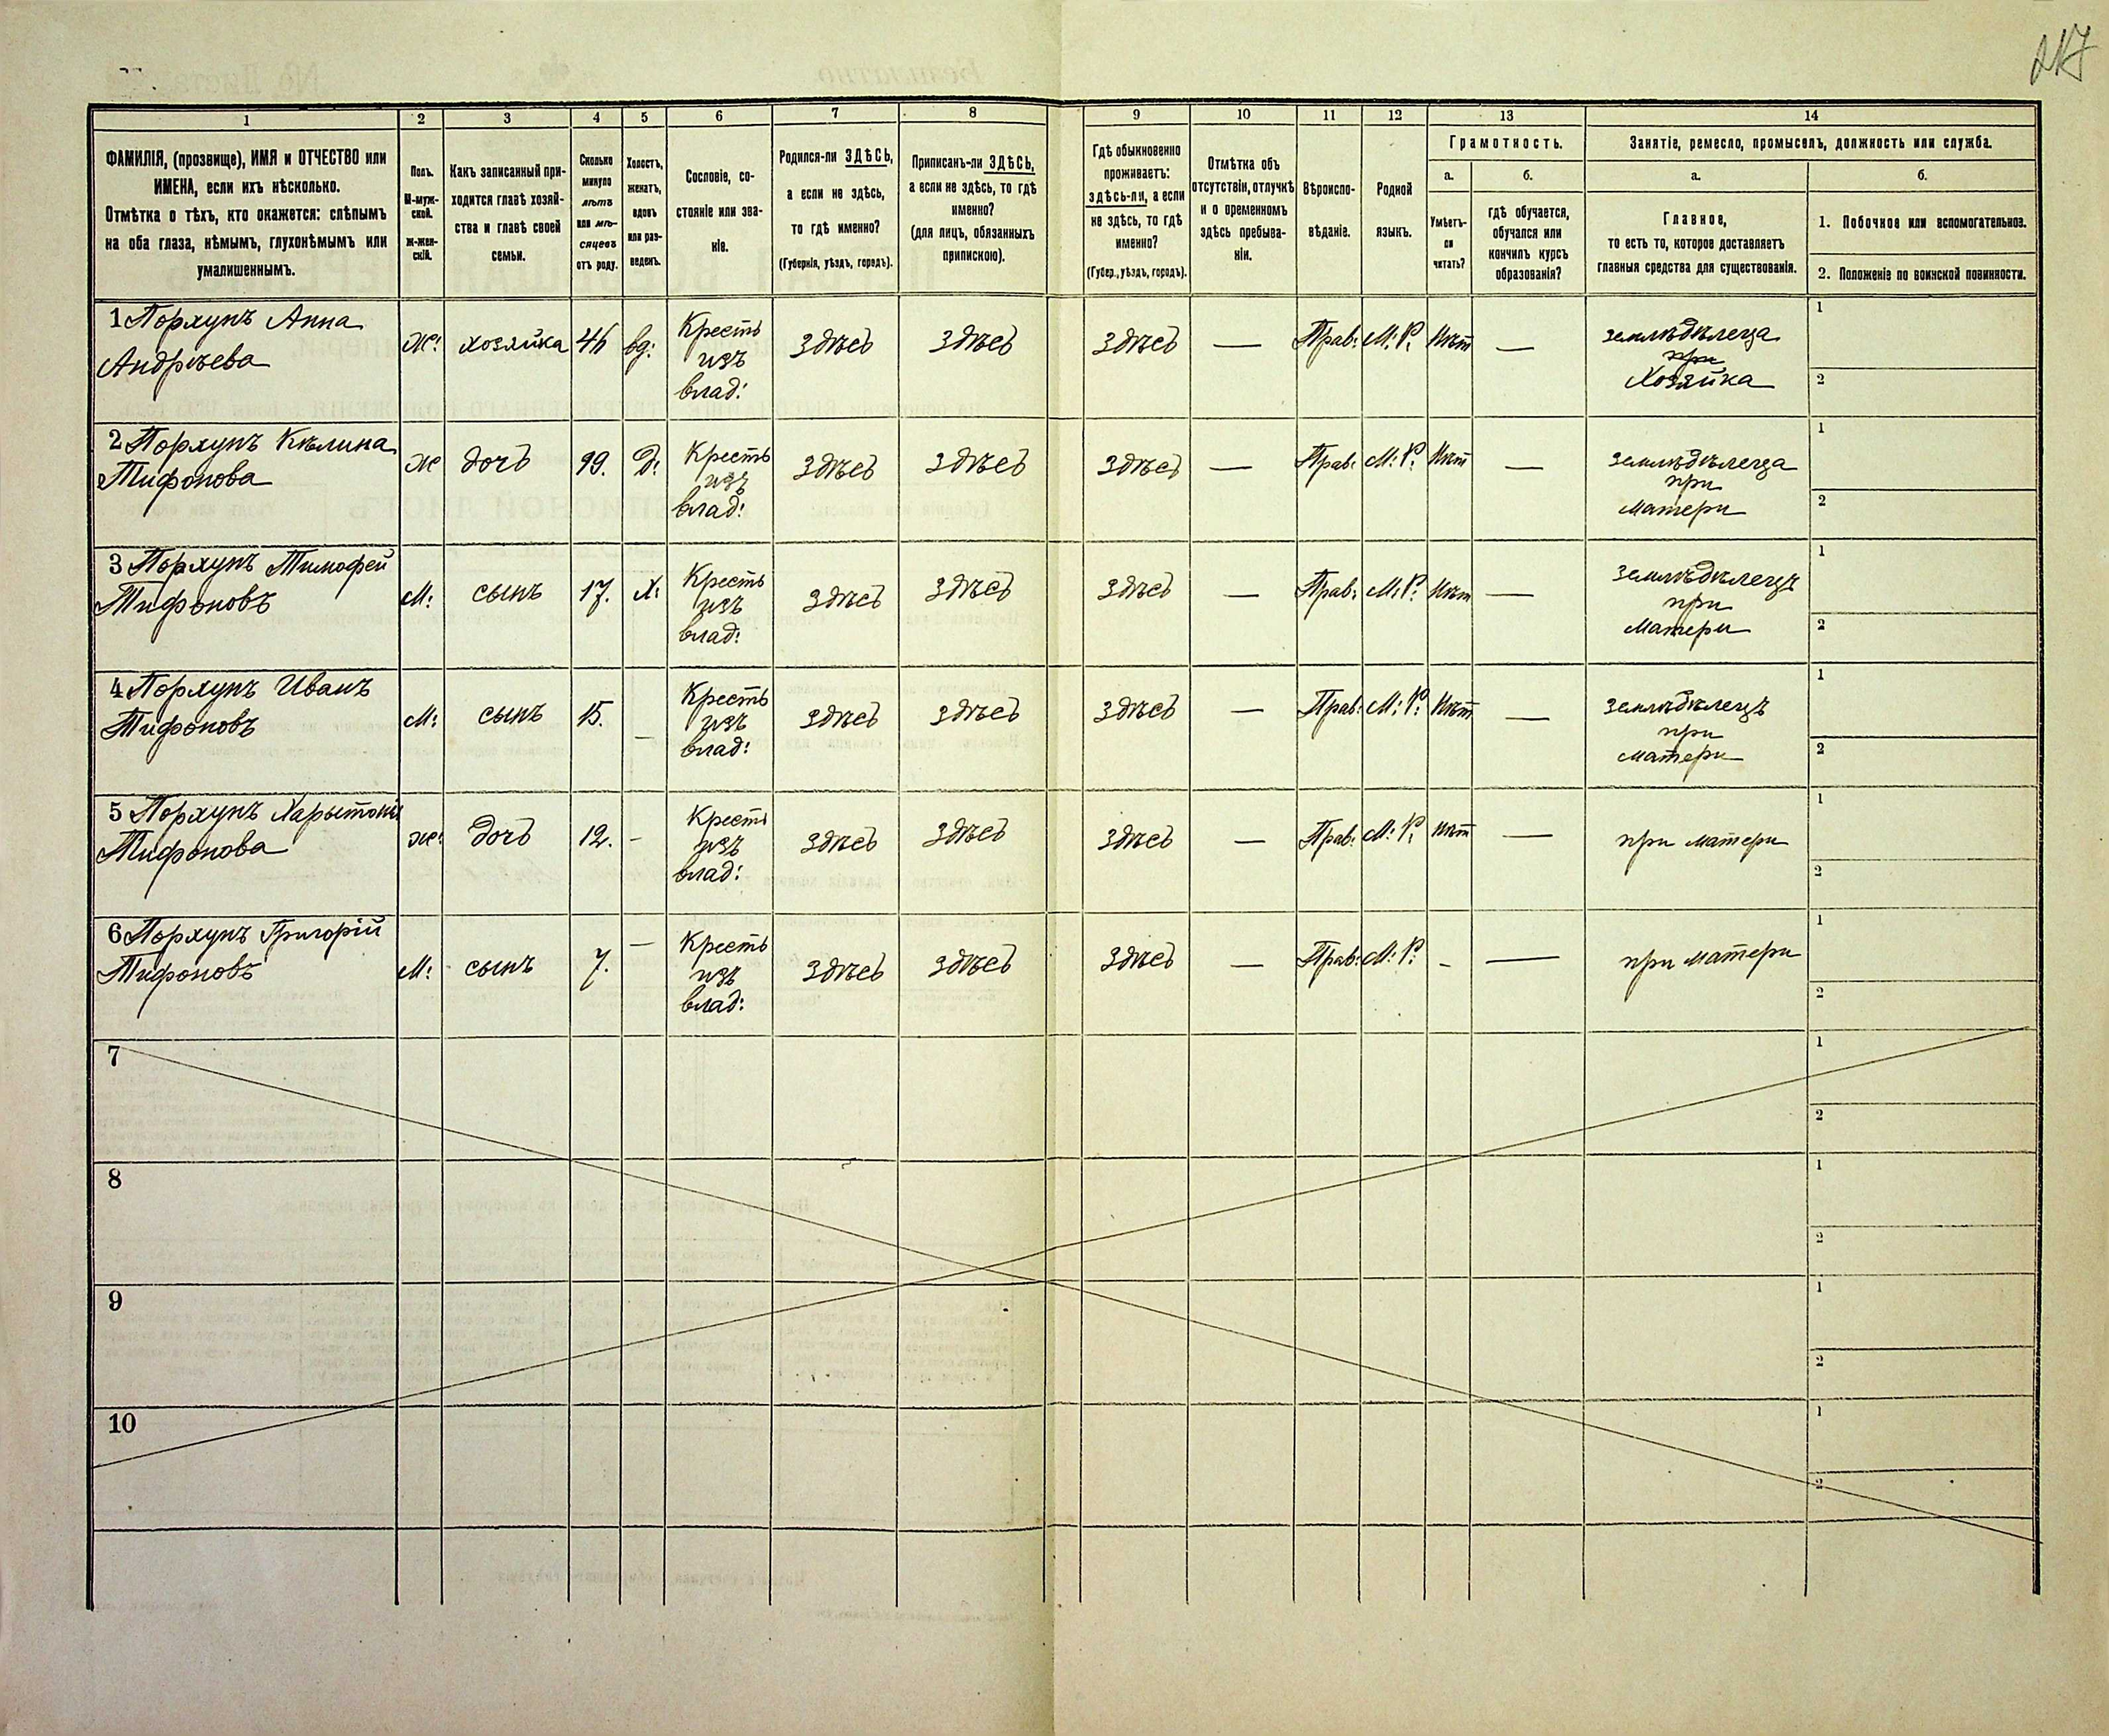 217
1 2 3 4 5 6 7 8 9 10 11 12 13 14
ФАМИЛІЯ, (прозвище), ИМЯ и ОТЧЕСТВО или
ИМЕНА, если ихъ нѣсколько.
Отмѣтка о тѣхъ, кто окажется: слѣпымъ
на оба глаза, нѣмымъ, глухонѣмымъ или
умалишеннымъ.
Полъ.
М-муж-
ской.
Ж-жен-
скій.
Какъ записанный при-
ходится главѣ хозяй-
ства и главѣ своей
семьи.
Сколько
минуло
лѣтъ
или мѣ-
сяцевъ
отъ роду.
Холостъ,
женатъ,
вдовъ
или раз-
веденъ.
Сословіе, со-
стояніе или зва-
ніе.
Родился-ли ЗДѢСЬ,
а если не здѣсь,
то гдѣ именно?
(Губернія, уѣздъ, городъ).
Приписанъ-ли ЗДѢСЬ,
а если не здѣсь, то гдѣ
именно?
(для лицъ, обязанныхъ
припискою).
Гдѣ обыкновенно
проживаетъ:
здѣсь-ли, а если
не здѣсь, то гдѣ
именно?
(Губер., уѣздъ, городъ).
Отмѣтка объ
отсутствіи, отлучкѣ
и о временномъ
здѣсь пребыва-
ніи.
Вѣроиспо-
вѣданіе.
Родной
языкъ.
Грамотность.
а.
Умѣетъ-
ли
читать?
б.
гдѣ обучается,
обучался или
кончилъ курсъ
образованія?
Занятіе, ремесло, промыселъ, должность или служба.
а.
Главное,
то есть то, которое доставляетъ
главныя средства для существованія.
б.
1. Побочное или вспомогательное.
2. Положеніе по воинской повинности.
1 Порхунъ Анна
Андрѣева
Ж: хозяйка 46 вд:
Кресть
изъ
влад:
здѣсь здѣсь здѣсь — Прав: М: Р. Нѣт —
земледѣлеца
при
Хозяйка
1
2
2 Порхунъ Кѣлина
Тифонова
Ж дочь 19. Д:
Кресть
изъ
влад:
здѣсь здѣсь здѣсь — Прав: М: Р. Нѣт —
земледѣлеца
при
матери
1
2
3 Порхунъ Тимофей
Тифоновъ
М: сынъ 17. Х:
Кресть
изъ
влад:
здѣсь здѣсь здѣсь — Прав: М: Р. Нѣт —
землѣдѣлецъ
при
Матери
1
2
4 Порхунъ Иванъ
Тифоновъ
М: сынъ 15. —
Кресть
изъ
влад:
здѣсь здѣсь здѣсь — Прав: М: Р. Нѣт —
землѣдѣлецъ
при
матери
1
2
5 Порхунъ Харытонія
Тифонова
Ж: дочь 12. -
Кресть
изъ
влад:
здѣсь здѣсь здѣсь — Прав: М: Р. Нѣт —
при матери
1
2
6 Порхунъ Григорій
Тифоновъ
М: сынъ 7. —
Кресть
изъ
влад:
здѣсь здѣсь здѣсь — Прав: М: Р. - —
при матери
1
2
7
1
2
8
1
2
9
1
2
10
1
2